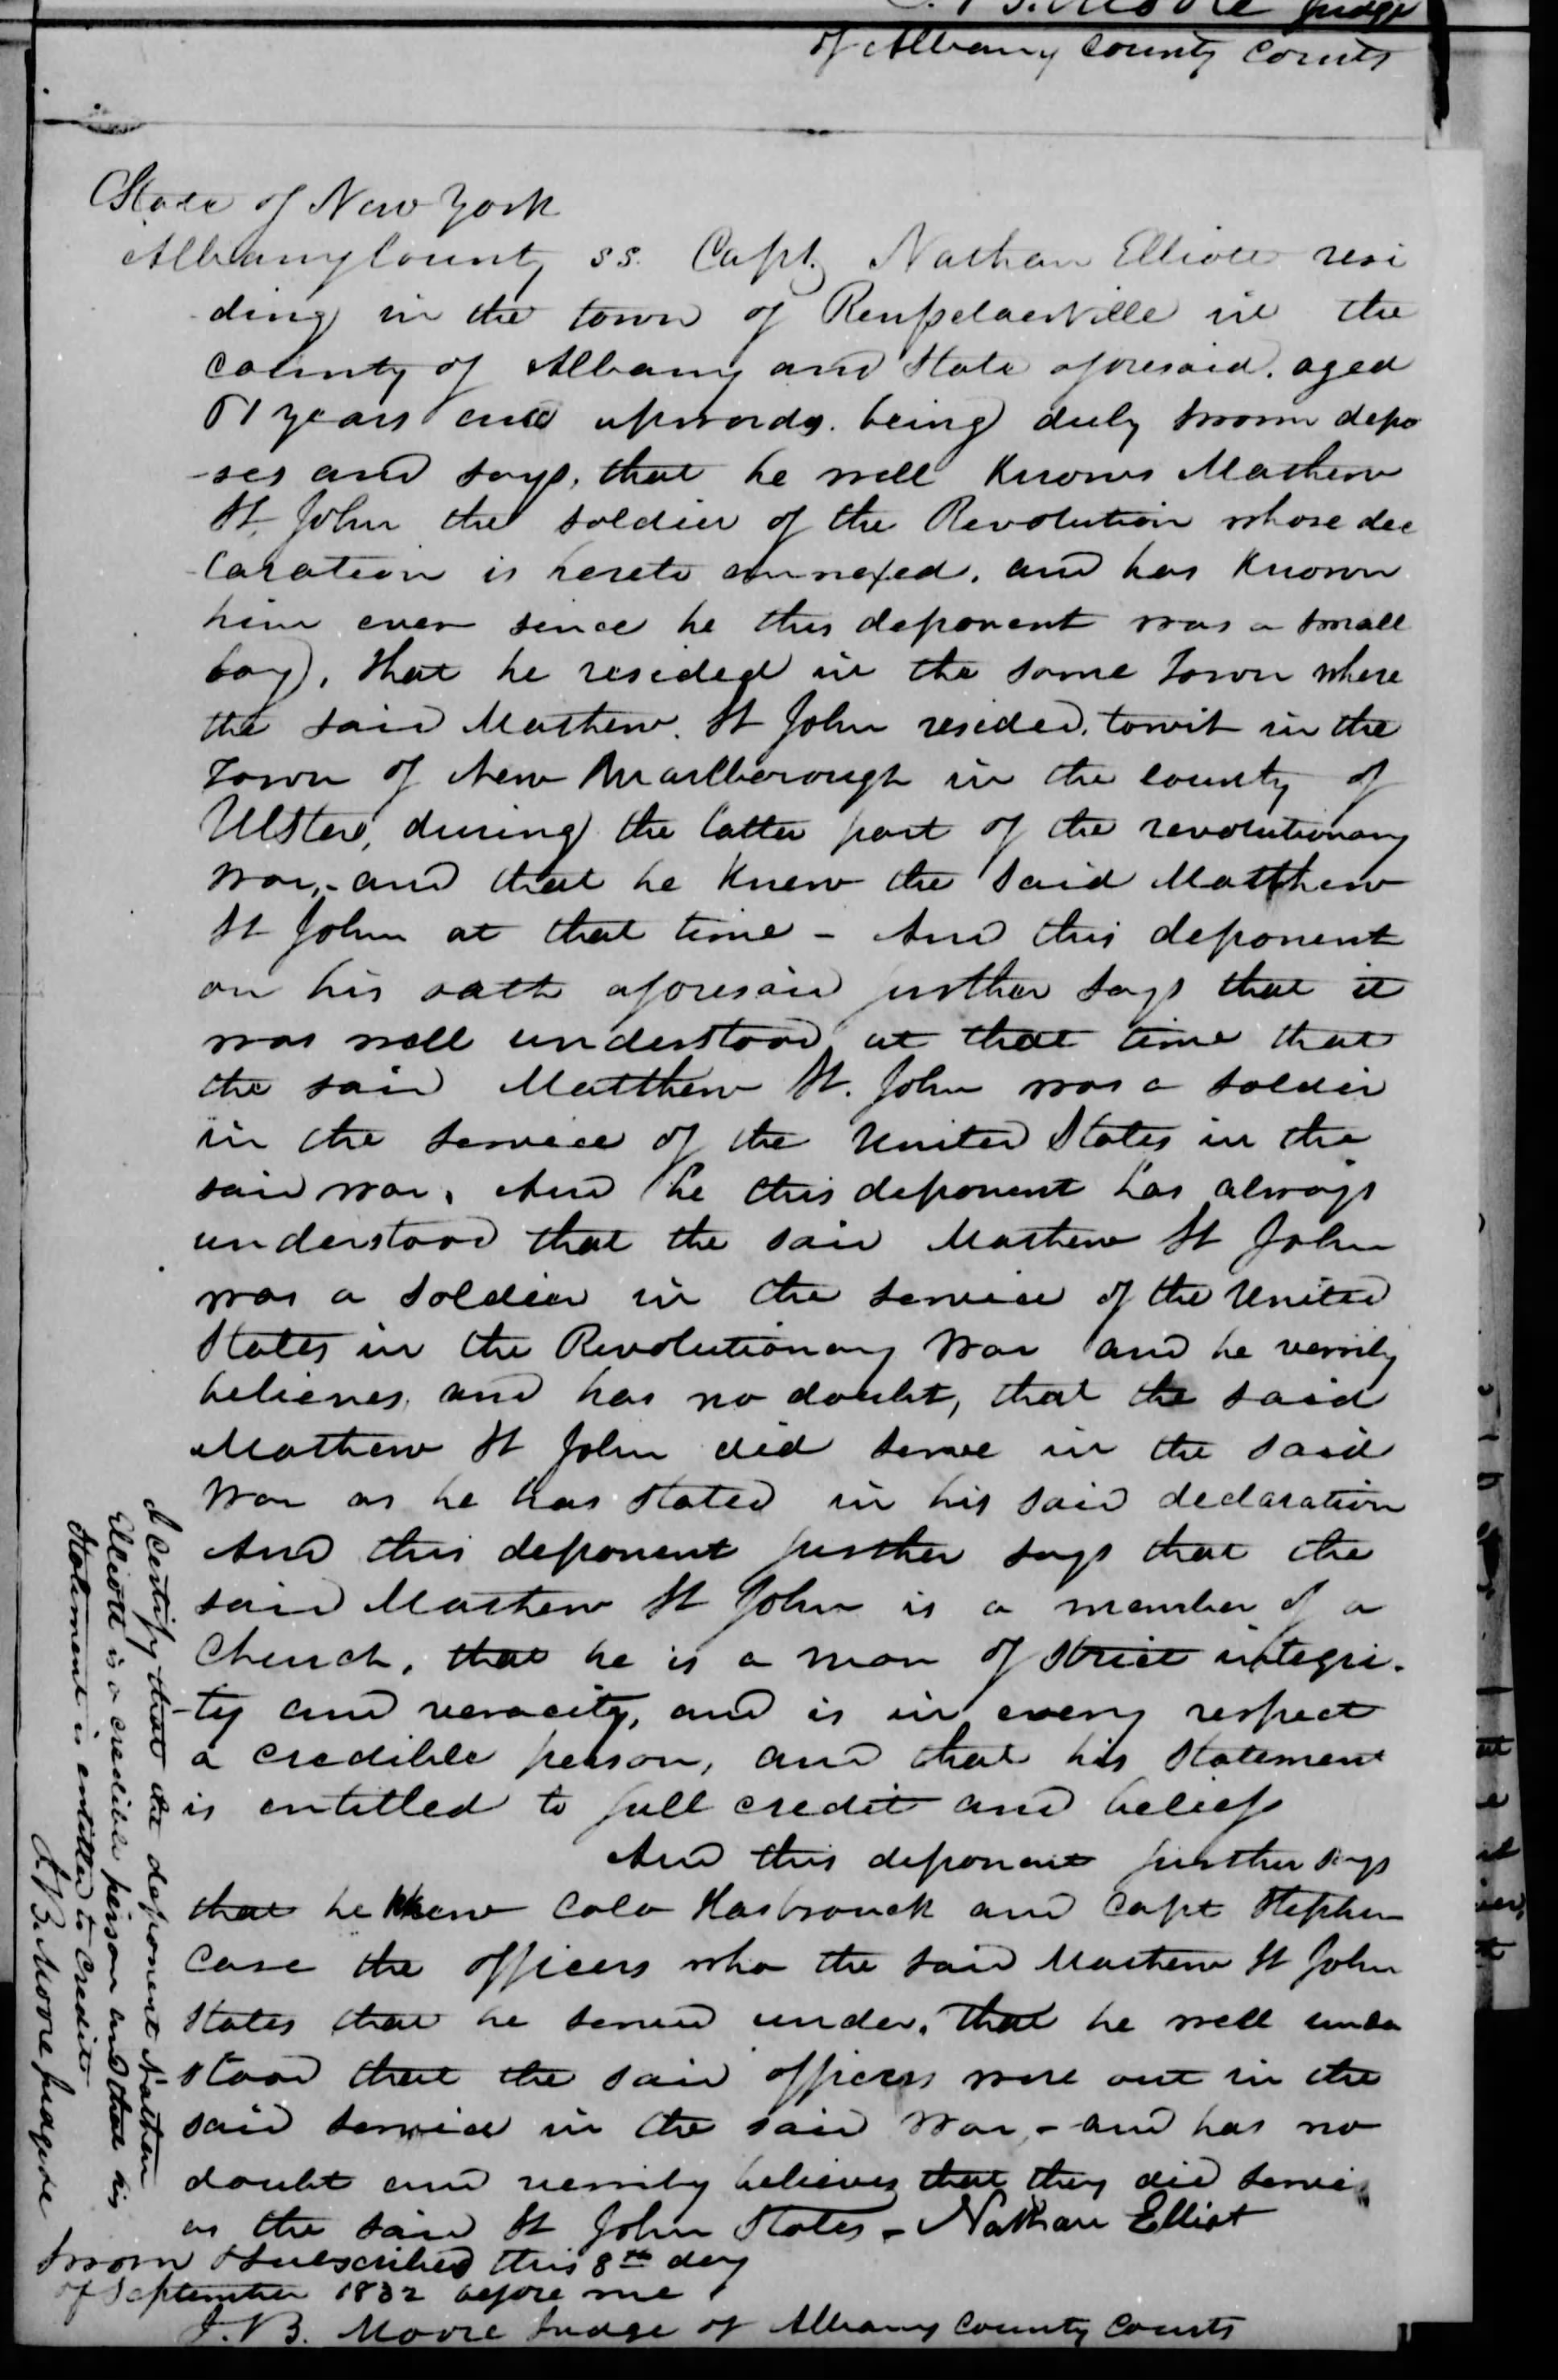 J. B. Moore Judge
of Albany County Courts
State of New York
Albany County ss. Capt. Nathan Elliott resi
ding in the town of Rensselaerville in the
county of Albany and State aforesaid. aged
61 years and upwards. being duly sworn depo
-ses and says, that he well knows Mathew
St. John the soldier of the Revolution whose dec
-laration is hereto annexed, and has known
him ever since he this deponent was a small
boy, that he resided in the same town where
the said Mathew. St John resided, towit in the
Town of New Marlborough in the county of
Ulster, during the latter part of the revolutionary
war,- and that he knew the said Matthew
St John at that time - And this deponent
on his oath aforesaid further says that it
was well understood at that time that
the said Matthew St. John was a soldier
in the service of the United States in the
said war. And he this deponent has always
understood that the said Mathew St John
was a soldier in the service of the United
States in the Revolutionary War and he verrily
believes, and has no doubt, that the said
Mathew St John did serve in the said
War as he has stated in his said declaration
And this deponent further says that the
said Mathew St John is a member of a
Church, that he is a man of strict integri-
-ty and veracity, and is in every respect
a credible person, and that his statement
is entitled to full credit and belief
And this deponent further says
that he knew Colo Hasbrouck and Capt Stephen
Case the officers who the said Mathew St John
States that he served under, that he well under
stood that the said officers were out in the
said service in the said War,- and has no
doubt and verrily believes that they did serve
as the said St John States - Nathan Elliot
Sworn & subscribed this 8th day
of September 1832 before me
J. B. Moore Judge of Albany County Courts
I Certify that the deponent Nathan
Elliott is a credible person and that his
Statement is entitled to Credit
J. B. Moore Judge &c